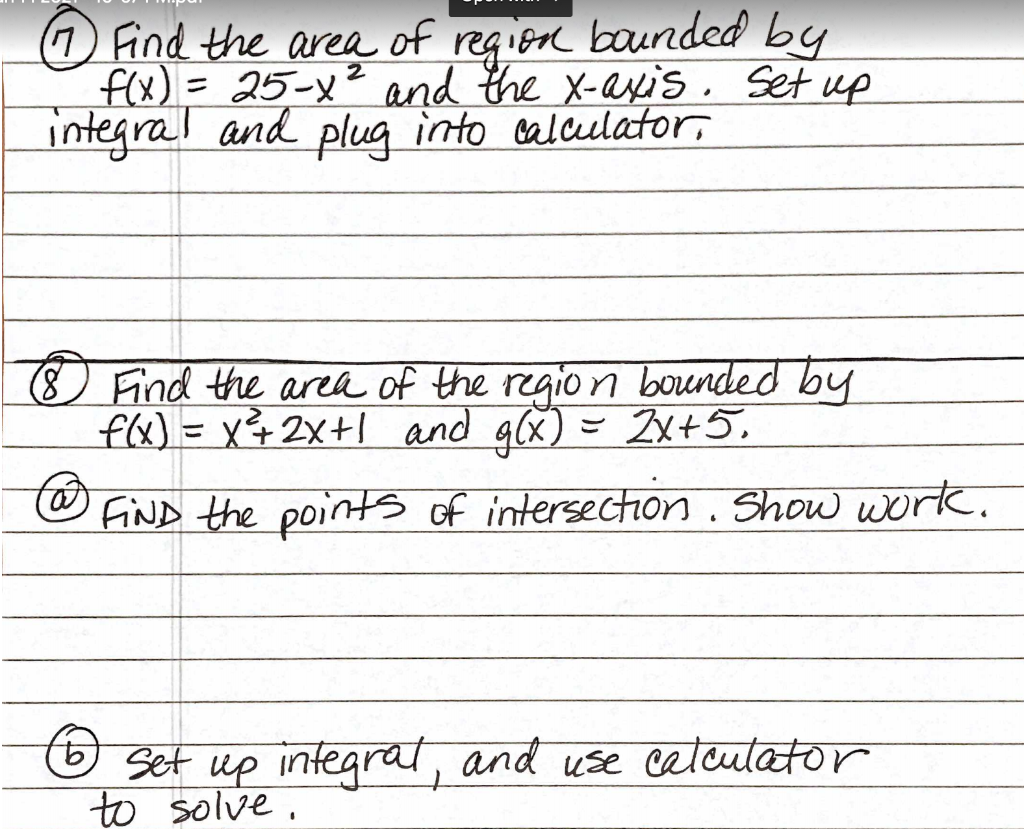 ⑦ Find the area of region bounded by
f(x) = 25-x² and the x-axis. Set up
integral and plug into calculator.
⑧ Find the area of the region bounded by
f(x) = x²+2x+1 and g(x) = 2x+5.
ⓐ FIND the points of intersection. Show work.
ⓑ Set up integral, and use calculator
to solve.